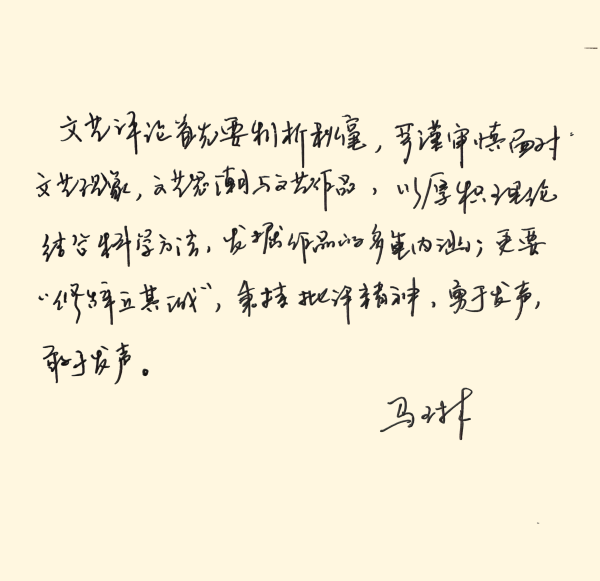 文艺评论首先要判析秋毫，严谨审慎面对
文艺现象，文艺思潮与文艺作品，以厚积理论
结合科学方法，发掘作品的多重内涵；更要
“修辞立其诚”，秉持批评精神，勇于发声，
敢于发声。
马琳